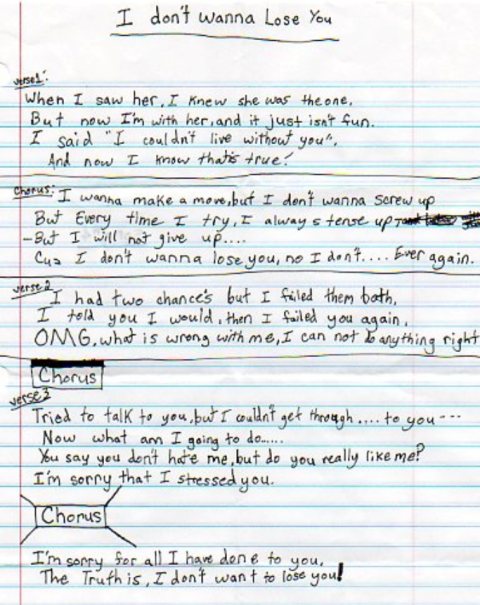 I don't wanna Lose You
verse1:
When I saw her, I knew she was the one,
But now I'm with her, and it just isn't fun.
I said "I couldn't live without you",
And now I know that's true!
Chorus: I wanna make a move, but I don't wanna screw up
But Every time I try, I always tense up
-But I will not give up....
Cuz I don't wanna lose you, no I don't.... Ever again.
verse2
I had two chance's but I failed them both,
I told you I would, then I failed you again,
OMG, what is wrong with me, I can not do anything right
Chorus
verse3
Tried to talk to you, but I couldn't get through .... to you ---
Now what am I going to do......
You say you don't hate me, but do you really like me?
I'm sorry that I stressed you.
Chorus
I'm sorry for all I have done to you,
The Truth is, I don't want to lose you!